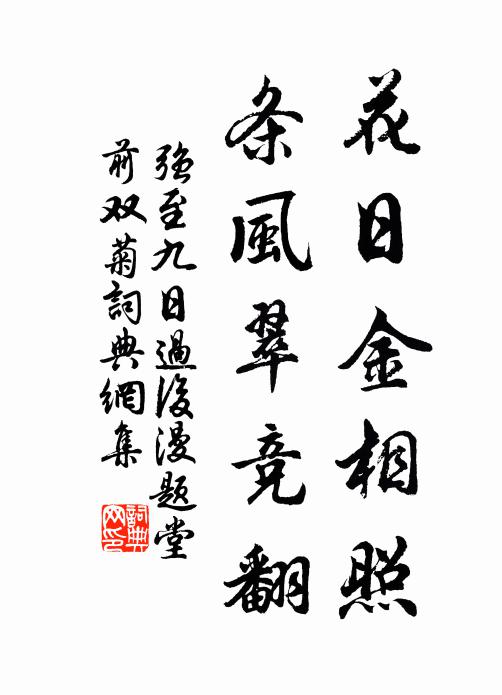 花日金相照
条風翠竞翻
强至九日過後漫题堂
前双菊詞典網集
詞典网印